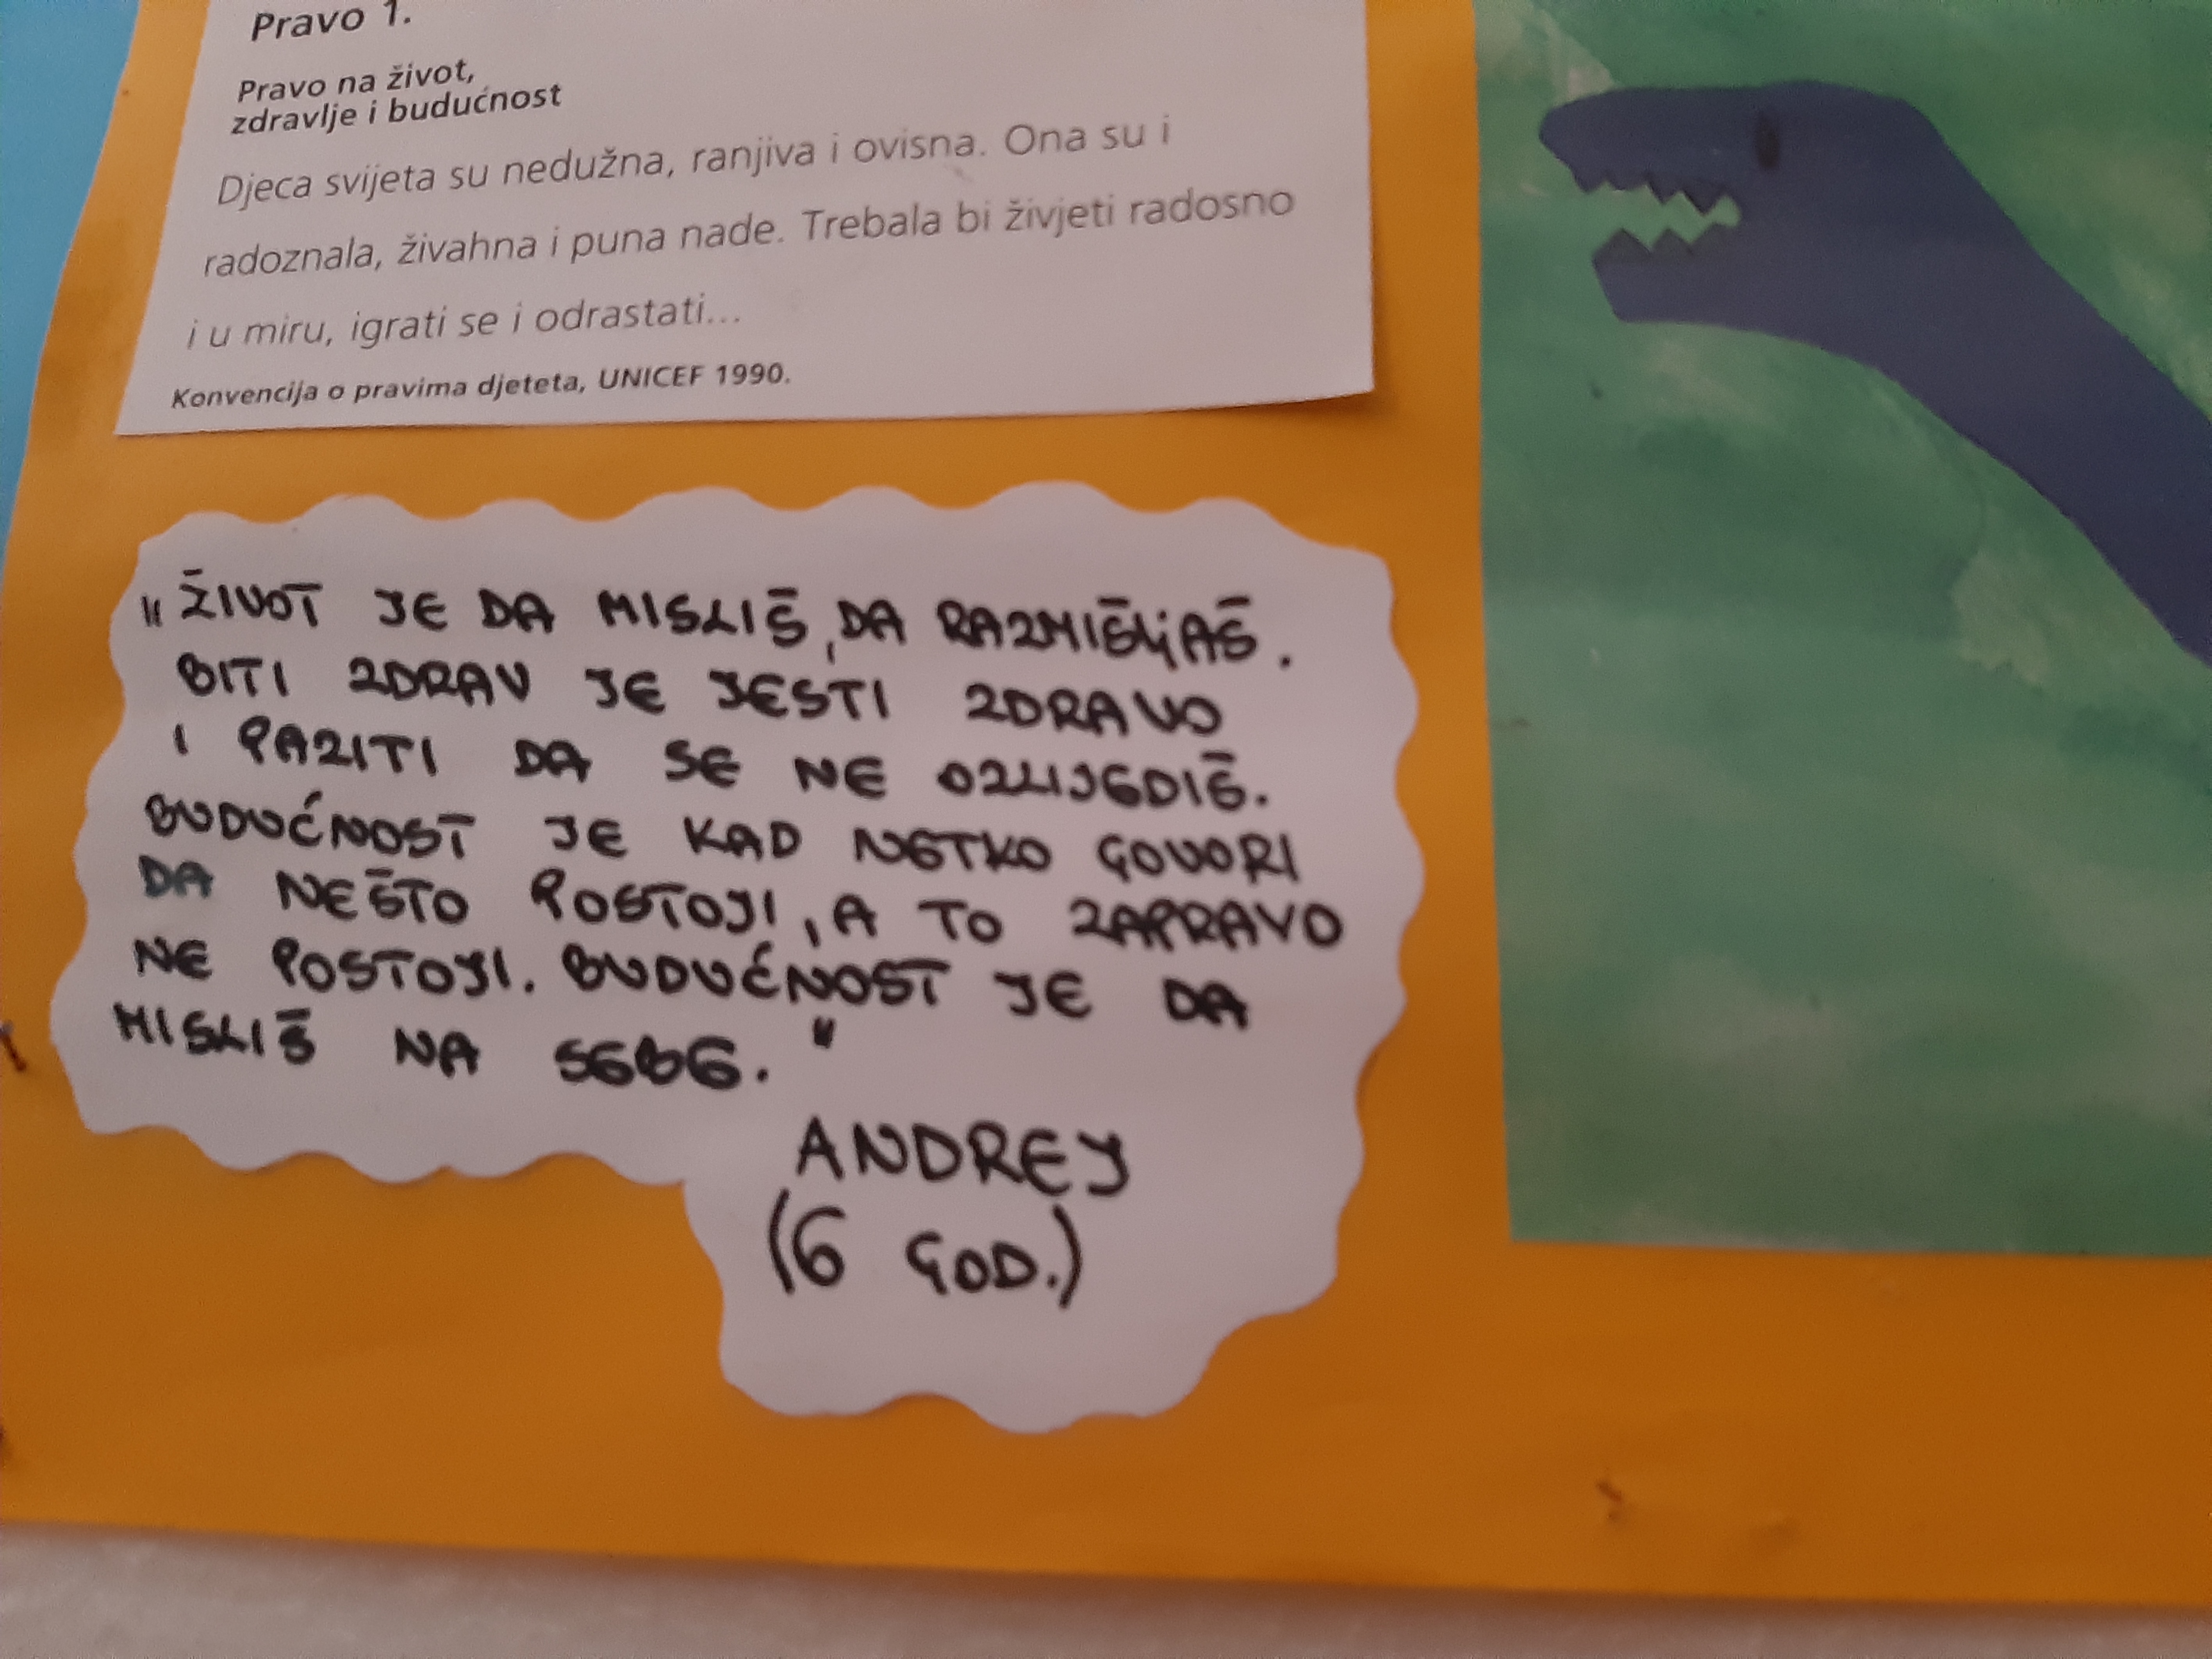 Pravo 1.
Pravo na život,
zdravlje i budućnost
Djeca svijeta su nedužna, ranjiva i ovisna. Ona su i
radoznala, živahna i puna nade. Trebala bi živjeti radosno
i u miru, igrati se i odrastati...
Konvencija o pravima djeteta, UNICEF 1990.
"ŽIVOT JE DA MISLIŠ, DA RAZMIŠLjAŠ.
BITI ZDRAV JE JESTI ZDRAVO
I PAZITI DA SE NE OZLIJEDIŠ.
BUDUĆNOST JE KAD NETKO GOVORI
DA NEŠTO POSTOJI, A TO ZAPRAVO
NE POSTOJI. BUDUĆNOST JE DA
MISLIŠ NA SEBE."
ANDREJ
(6 GOD.)